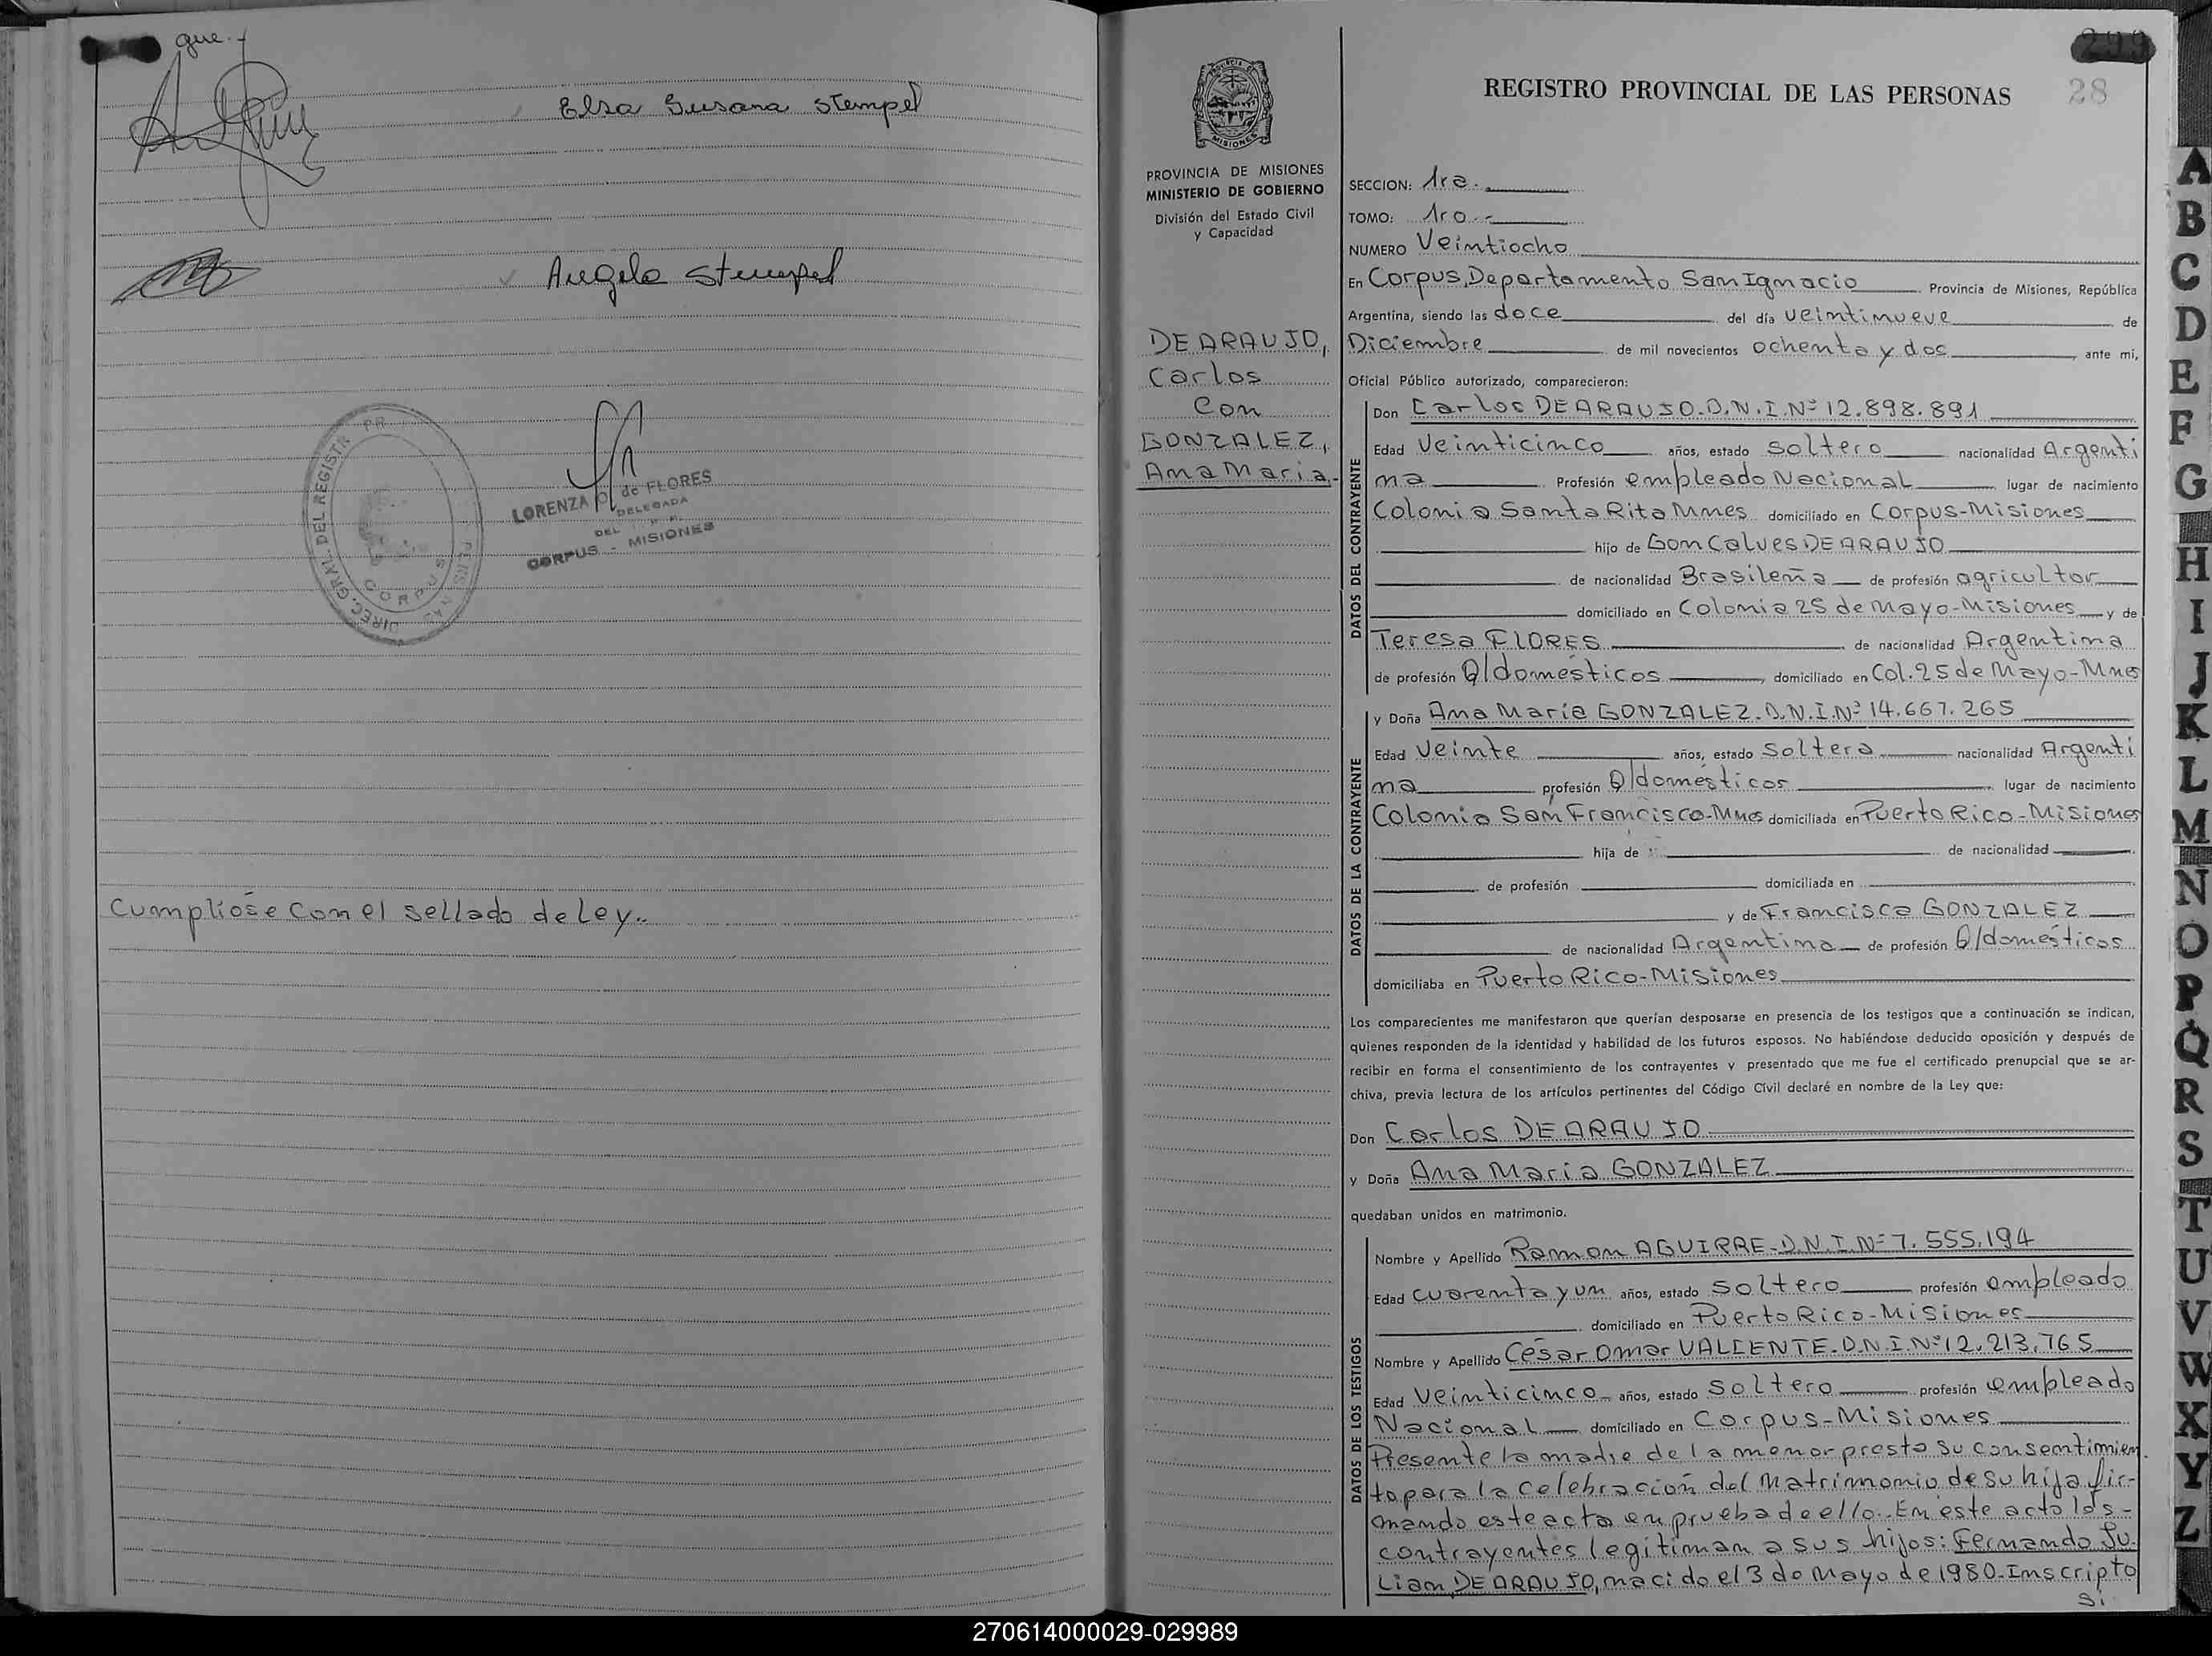 que.-
Elsa Susana Stempel
Angela Stempel
DIREC. GRAL. DEL REGISTR
CORPUS
LORENZA O. de FLORES
DELEGADA
DEL
CORPUS - MISIONES
Cumpliose con el sellado de Ley.-
PROVINCIA DE MISIONES
MINISTERIO DE GOBIERNO
División del Estado Civil
y Capacidad
DE ARAUJO,
Carlos
Con
GONZALEZ,
Ana Maria.-
299
28
REGISTRO PROVINCIAL DE LAS PERSONAS
SECCION: 1ra.
TOMO: 1ro.-
NUMERO Veintiocho
En Corpus, Departamento San Ignacio Provincia de Misiones, República
Argentina, siendo las doce del día veintinueve de
Diciembre de mil novecientos ochenta y dos, ante mi,
Oficial Público autorizado, comparecieron:
DATOS DEL CONTRAYENTE
Don Carlos DE ARAUJO.D.N.I.Nº 12.898.891
Edad Veinticinco años, estado soltero nacionalidad Argenti
na Profesión empleado Nacional lugar de nacimiento
Colonia Santa Rita Mnes domiciliado en Corpus-Misiones
hijo de Goncalves DE ARAUJO
de nacionalidad Brasileña de profesión agricultor
domiciliado en Colonia 25 de Mayo-Misiones y de
Teresa FLORES de nacionalidad Argentina
de profesión Q/domésticos, domiciliado en Col. 25 de Mayo-Mnes
DATOS DE LA CONTRAYENTE
y Doña Ana María GONZALEZ.D.N.I.Nº 14.667.265
Edad Veinte años, estado soltera nacionalidad Argenti
na profesión Q/domésticos lugar de nacimiento
Colonia San Francisco-Mnes domiciliada en Puerto Rico-Misiones
hija de de nacionalidad
de profesión domiciliada en
y de Francisca GONZALEZ
de nacionalidad Argentina de profesión Q/domésticos
domiciliaba en Puerto Rico-Misiones
Los comparecientes me manifestaron que querían desposarse en presencia de los testigos que a continuación se indican,
quienes responden de la identidad y habilidad de los futuros esposos. No habiéndose deducido oposición y después de
recibir en forma el consentimiento de los contrayentes y presentado que me fue el certificado prenupcial que se ar-
chiva, previa lectura de los artículos pertinentes del Código Civil declaré en nombre de la Ley que:
Don Carlos DE ARAUJO
y Doña Ana Maria GONZALEZ
quedaban unidos en matrimonio.
DATOS DE LOS TESTIGOS
Nombre y Apellido Ramon AGUIRRE-D.N.I.Nº 7.555.194
Edad cuarenta y un años, estado soltero profesión empleado
domiciliado en Puerto Rico-Misiones
Nombre y Apellido César Omar VALIENTE.D.N.I.Nº 12.213.765
Edad Veinticinco años, estado soltero profesión empleado
Nacional domiciliado en Corpus-Misiones
Presente la madre de la menor presta su consentimien
to para la celebración del matrimonio de su hija fir-
mando este acta en prueba de ello. En este acto los-
contrayentes legitiman a sus hijos: Fernando Ju-
lian DE ARAUJO, nacido el 3 de Mayo de 1980-Inscripto
si
A
B
C
D
E
F
G
H
I
J
K
L
M
N
O
P
Q
R
S
T
U
V
W
X
Y
Z
270614000029-029989